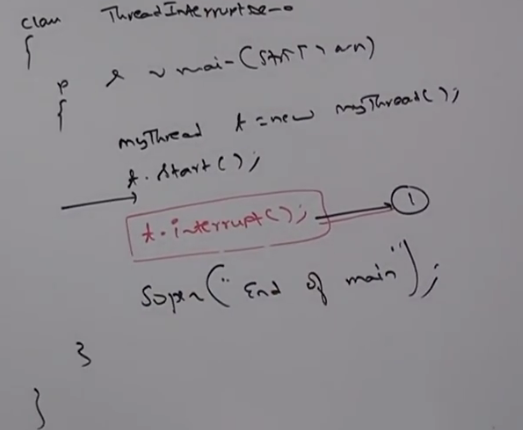 class ThreadInterruptDemo
{
p s v main(String[] args)
{
myThread t = new myThread();
t.start();
t.interrupt(); → 1
Sopln("End of main");
}
}